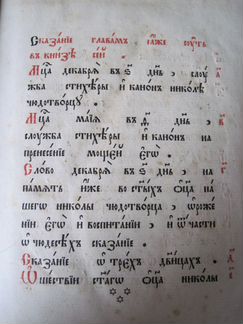 Сказа́нїе глава́мъ ꙗ҆̀же сꙋ́ть
въ кни́зѣ се́й .
Мц҃а декабрѧ̀ въ ѕ҃ дн҃ь , слꙋ́
жба стїхѣ́ры и҆ кано́нъ нико́лѣ
чюдотво́рцꙋ .
Мц҃а ма́їѧ въ д҃ дн҃ь ,
слꙋ́жба стїхѣ́ры и҆ кано́нъ на
пренесе́нїе моще́й є҆гѡ̀ .
Сло́во декабрѧ̀ въ ѕ҃ дн҃ь , на
па́мѧть и҆́же во ст҃ы́хъ ѻ҆ц҃а̀ на
шегѡ̀ нико́лы чюдотво́рца , ѡ҆ рож́е
нїи є҆гѡ̀ и҆ воспита́нїи , и҆ ѿ ча́сти
ѡ҆ чюдесѣ́хъ сказа́нїе .
Сказа́нїе ѡ҆ тре́хъ дв҃и́цахъ .
Ѡ҆ ше́ствїи ст҃а́гѡ ѻ҆ц҃а̀ нико́лы